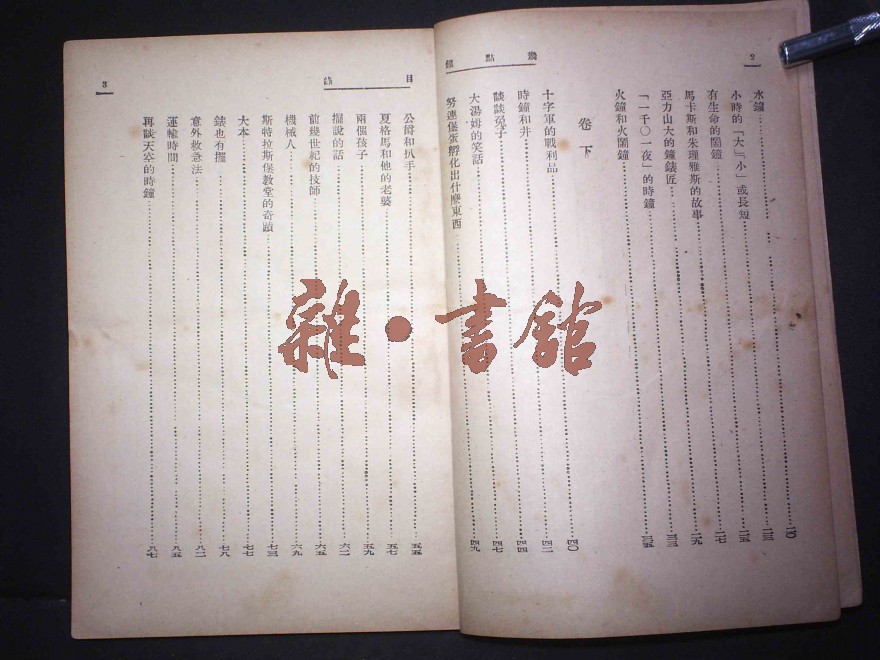 2
幾點鐘
水鐘……二〇
小時的「大」「小」或長短……二三
有生命的鬧鐘……二五
馬卡斯和朱理雅斯的故事……二七
亞力山大的鐘錶匠……二九
「一千〇一夜」的時鐘……三三
火鐘和火鬧鐘……三五
卷下
十字軍的戰利品……四〇
時鐘和井……四二
談談兔子……四四
大湯姆的笑話……四七
努連堡蛋孵化出什麼東西……四九
目錄
3
公爵和扒手……五五
夏格馬和他的老婆……五七
兩個孩子……五九
擺說的話……六二
前幾世紀的技師……六五
機械人……六九
斯特拉斯堡教堂的奇蹟……七三
大本……七七
錶也有擺……七八
意外救急法……八二
運輸時間……八五
再談天空的時鐘……八七
雜·書館